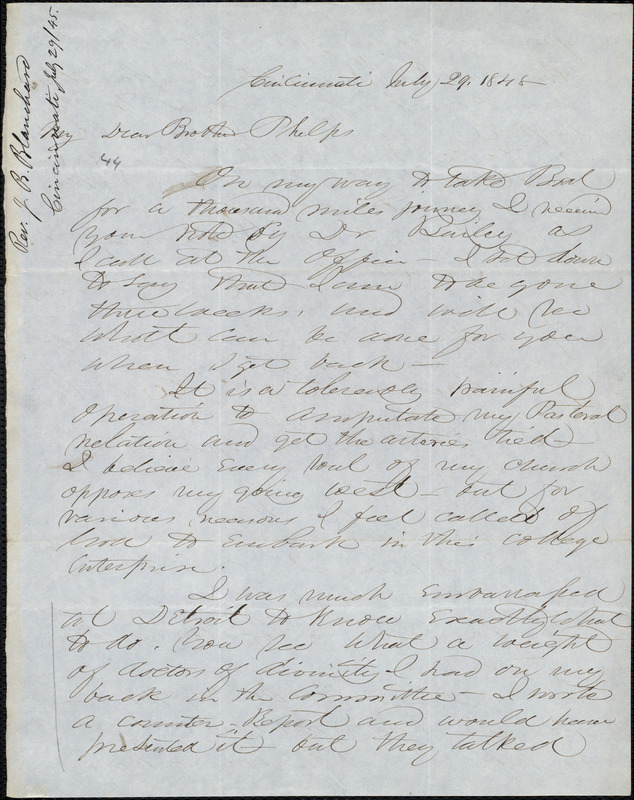 Rev. J. B. Blanchard
Cincinnati July 29/45.
Cincinnati July 29. 1845
My Dear Brother Phelps
44
On my way to take Boat
for a thousand miles journey I receive
your note by Dr Bailey as
I call at the Office - I sit down
to say that I am to be gone
three weeks, and will see
what can be done for you
when I get back -
It is a tolerably painful
operation to amputate my Pastoral
relation and get the arteries tied -
I believe every soul of my church
opposes my going west - but for
various reasons I feel called of
God to embark in this college
Enterprise.
I was much embarrassed
at Detroit to know exactly what
to do. You see what a weight
of doctors of divinity I had on my
back in the Committee - I wrote
a counter-Report and would have
presented it - but they talked